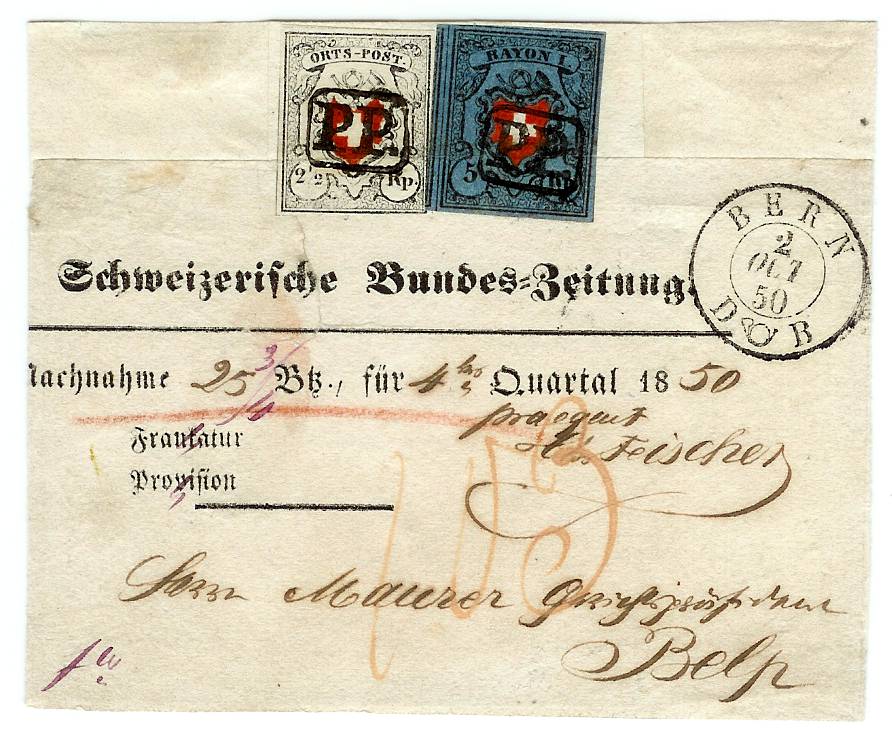 ORTS-POST.
P.P.
2 1/2 Rp.
RAYON I.
P.P.
5 Rp.
BERN
2
OCT
50
B
Schweizeriſche Bundes-Zeitung.
Nachnahme 25 3/4 Btz., für 4tes Quartal 1850
Frankatur
Proviſion
103
Herrn Maurer Gerichtspräsident
Belp